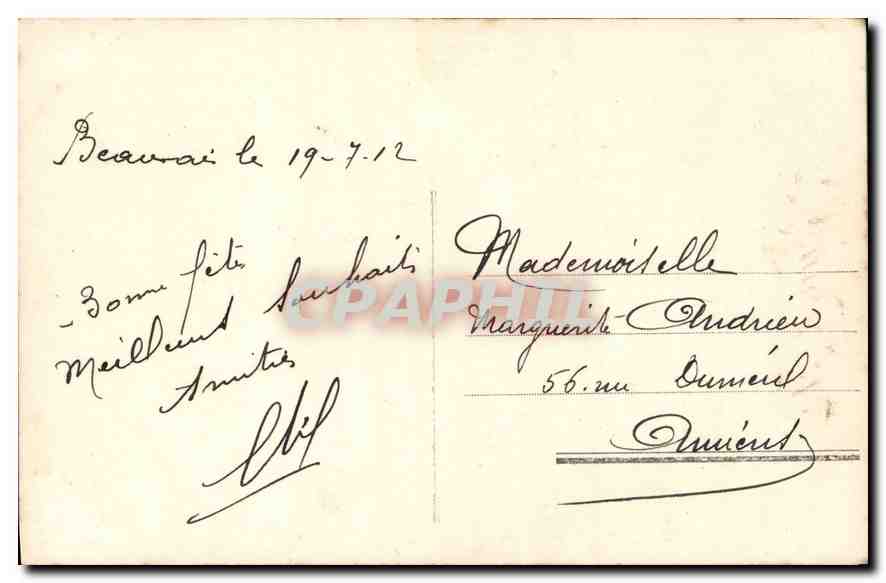 Beauvais le 19-7-12
- Bonne fête
Meilleurs Souhaits
Amitiés
Mademoiselle
Marguerite Andrieu
56. rue Duméril
Amiens
CPAPHIL